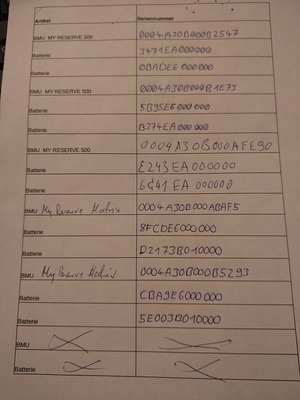 Artikel Seriennummer
BMU MY RESERVE 500 0004A30B000B2547
Batterie 3471EA000000
Batterie 0BADEE000000
BMU MY RESERVE 500 0004A30B000B1E73
Batterie 5B95E6000000
Batterie B374EA000000
BMU MY RESERVE 500 0004A30B000AFE90
Batterie E243EA000000
Batterie 6C41EA000000
BMU My Reserve Matrix 0004A30B000ABAF5
Batterie 8FCDE6000000
Batterie D2173B010000
BMU My Reserve Matrix 0004A30B000B5293
Batterie CBA9E6000000
Batterie 5E003B010000
BMU
Batterie